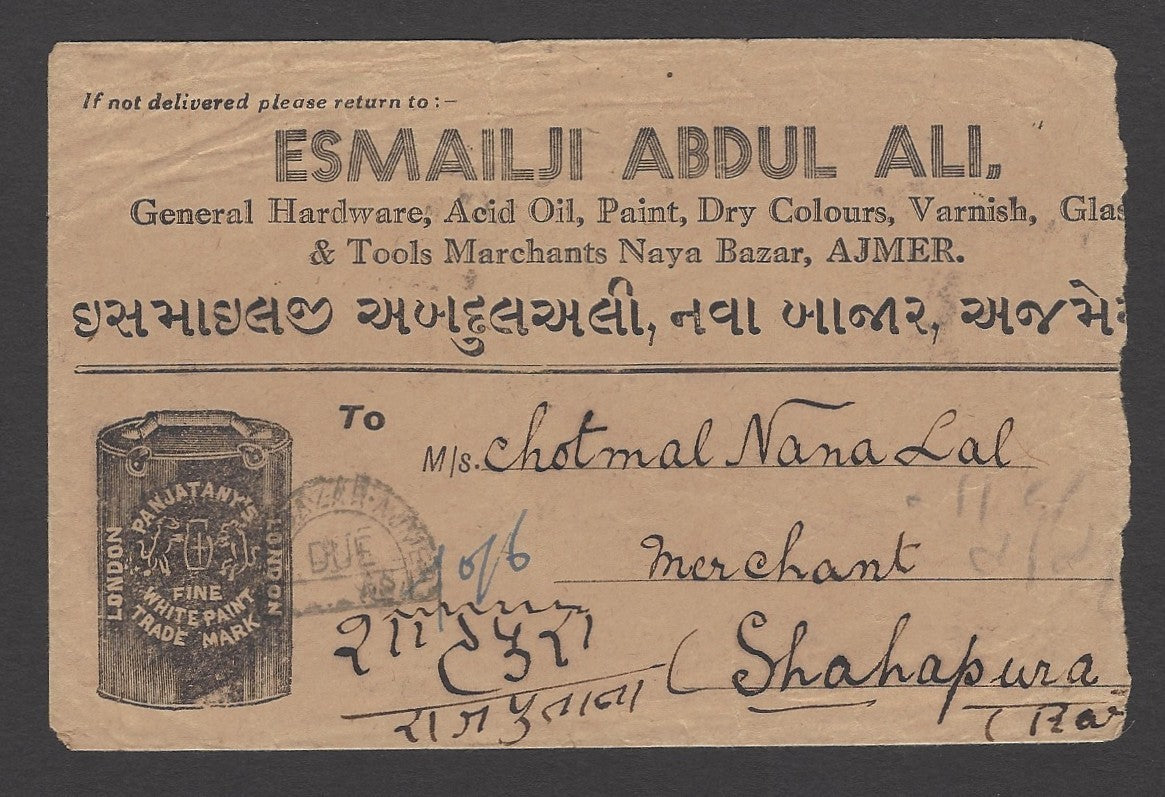 If not delivered please return to :–
ESMAILJI ABDUL ALI,
General Hardware, Acid Oil, Paint, Dry Colours, Varnish, Glas
& Tools Merchants Naya Bazar, AJMER.
ઇસમાઇલજી અબદુલઅલી, નવા બાજાર, અજમે
To
M/s. Chotmal Nana Lal
Merchant
Shahapura
(Ra
शाहपुरा
राजपुताना
PANJATANY'S
LONDON
LONDON
FINE
WHITE PAINT
TRADE MARK
DUE